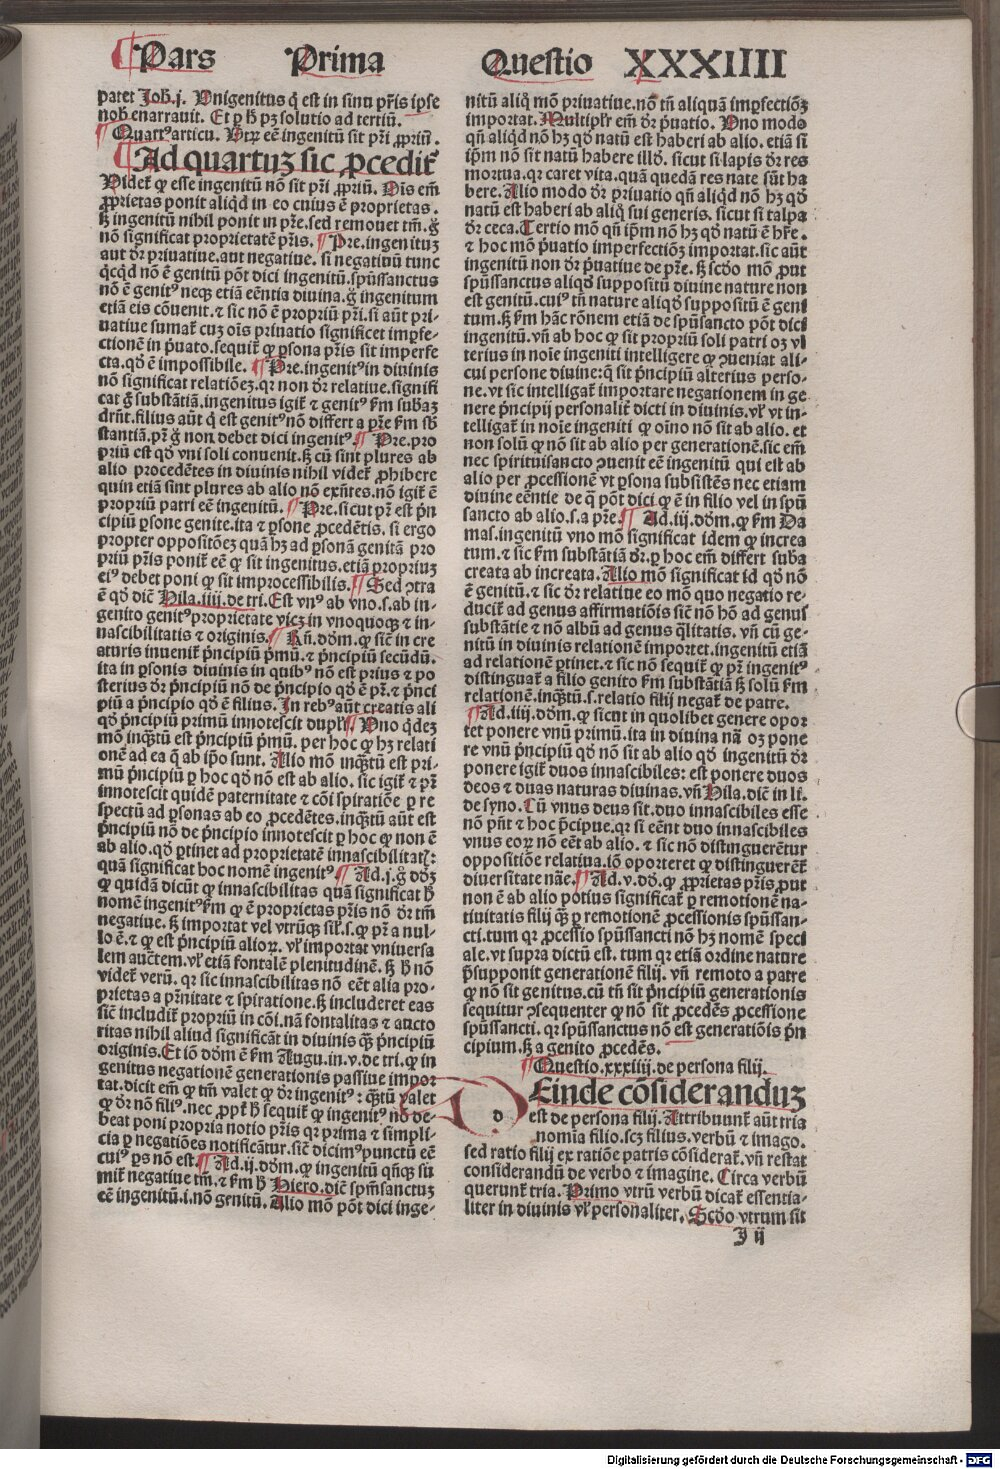 Pars Prima Questio XXXIIII
patet Joh̄. j. Unigenitus q̄ est in sinu pr̄is ipse
nob̄ enarrauit. Et ꝑ h̄ pꝫ solutio ad tertiū.
Quartꝰ articu. Utꝝ eē ingenitū sit pr̄i ꝓpriū.
Ad quartuꝫ sic ꝓcedit̄
Videt̄ ꝙ esse ingenitū nō sit pr̄i ꝓpriū. Ois em̄
ꝓprietas ponit aliqd̓ in eo cuius ē proprietas.
sꝫ ingenitū nihil ponit in pr̄e. sed remouet tm̄. g̊
nō significat proprietatē pr̄is. Pre. ingenituꝫ
aut dr̄ priuatiue. aut negatiue. si negatiuū tunc
qcqd̓ nō ē genitū pōt dici ingenitū. spūssanctus
nō ē genitꝰ neqꝫ etiā eēntia diuina. g̊ ingenitum
etiā eis cōuenit. ⁊ sic nō ē propriū pr̄i. si aūt pri-
uatiue sumat̄ cuꝫ oīs priuatio significet imꝑfe-
ctionē in p̄uato. sequit̄ ꝙ ꝑsona pr̄is sit imperfe
cta. qd̓ ē impossibile. Pre. ingenitꝰ in diuinis
nō significat relatiōeꝫ. qr non dr̄ relatiue. signifi
cat g̊ substātiā. ingenitus igit̄ ⁊ genitꝰ km̄ subāꝫ
dr̄nt. filius aūt q̄ est genitꝰ nō differt a pr̄e km̄ sb̄
stantiā. pr̄ g̊ non debet dici ingenitꝰ. Pre. pro
priū est qd̓ vni soli conuenit. sꝫ cū sint plures ab
alio procedētes in diuinis nihil videt̄ ꝓhibere
quin etiā sint plures ab alio nō exn̄tes. nō igit̄ ē
propriū patri eē ingenitū. Pre. sicut pr̄ est p̄n
cipiū ꝑsone genite. ita ⁊ ꝑsone ꝓcedētis. si ergo
propter oppositōeꝫ quā hꝫ ad ꝑsonā genitā pro
priū pr̄is ponit̄ eē ꝙ sit ingenitus. etiā propriuꝫ
eiꝰ debet poni ꝙ sit improcessibilis. Sed ꝯtra
ē qd̓ diē Hila. iiij. de tri. Est vnꝰ ab vno. s. ab in-
genito genitꝰ proprietate vicꝫ in vnoquoqꝫ ⁊ in-
nascibilitatis ⁊ originis. Rn̄. dōm. ꝙ sic̄ in cre
aturis inuenit̄ p̄ncipiū p̄mū. ⁊ p̄ncipiū secūdū.
ita in ꝑsonis diuinis in quibꝰ nō est prius ⁊ po
sterius dr̄ p̄ncipiū nō de p̄ncipio qd̓ ē pr̄. ⁊ p̄nci
piū a p̄ncipio qd̓ ē filius. In rebꝰ aūt creatis ali
qd̓ p̄ncipiū primū innotescit dupl̄r. Uno q̇deꝫ
mō inqꝫtū est p̄ncipiū p̄mū. per hoc ꝙ hꝫ relati
onē ad ea q̄ ab ip̄o sunt. Alio mō inqꝫtū est pri-
mū p̄ncipiū ꝑ hoc qd̓ nō est ab alio. sic igit̄ ⁊ pr̄
innotescit quidē paternitate ⁊ cōi spiratiōe ꝑ re
spectū ad ꝑsonas ab eo ꝓcedētes. inqꝫtū aūt est
p̄ncipiū nō de p̄ncipio innotescit ꝑ hoc ꝙ non ē
ab alio. qd̓ ꝑtinet ad proprietatē innascibilitatꝭ:
quā significat hoc nomē ingenitꝰ. Ad. j. g̊ dōꝫ
ꝙ quidā dicūt ꝙ innascibilitas quā significat h̄
nomē ingenitꝰ km̄ ꝙ ē proprietas pr̄is nō dr̄ tm̄
negatiue. sꝫ importat vel vtrūqꝫ sil̓. s. ꝙ pr̄ a nul-
lo ē. ⁊ ꝙ est p̄ncipiū alioꝝ. vl̓ importat vniuersa
lem auctem. vl̓ etiā fontalē plenitudinē. sꝫ h̄ nō
videt̄ verū. qr sic innascibilitas nō eēt alia pro-
prietas a pr̄nitate ⁊ spiratione. sꝫ includeret eas
sic̄ includit̄ propriū in cōi. nā fontalitas ⁊ aucto
ritas nihil aliud significāt in diuinis qꝫ p̄ncipiū
originis. Et iō dōm ē km̄ Augu. in. v. de tri. ꝙ in
genitus negationē generationis passiue impor
tat. dicit em̄ ꝙ tm̄ valet ꝙ dr̄ ingenitꝰ: qꝫtū valet
ꝙ dr̄ nō filiꝰ. nec ꝓpt̄ h̄ sequit̄ ꝙ ingenitꝰ nō de-
beat poni propria notio pr̄is qr prima ⁊ simpli-
cia ꝑ negatiōes notificātur. sic̄ dicimꝰ punctū eē
cuiꝰ ꝑs nō est. Ad. ij. dōm. ꝙ ingenitū qn̄qꝫ su
mit̄ negatiue tm̄. ⁊ km̄ h̄ Hiero. diē spm̄sanctuꝫ
eē ingenitū. i. nō genitū. Alio mō pōt dici inge-
nitū aliq̊ mō priuatiue. nō tn̄ aliquā imꝑfectiōꝫ
importat. Multipl̓r em̄ dr̄ p̄uatio. Uno modo
qn̄ aliqd̓ nō hꝫ qd̓ natū est haberi ab alio. etiā si
ip̄m nō sit natū habere illd̓. sicut si lapis dr̄ res
mortua. qr caret vita. quā quedā res nate sūt ha
bere. Alio modo dr̄ priuatio qn̄ aliqd̓ nō hꝫ qd̓
natū est haberi ab aliq̊ sui generis. sicut si talpa
dr̄ ceca. Tertio mō qn̄ ip̄m nō hꝫ qd̓ natū ē hr̄e.
⁊ hoc mō p̄uatio imperfectiōꝫ importat. sic aūt
ingenitū non dr̄ p̄uatiue de pr̄e. sꝫ scd̓o mō prout
spūssanctus aliqd̓ suppositū diuine nature non
est genitū. cuiꝰ tn̄ nature aliqd̓ suppositū ē geni
tum. sꝫ km̄ hāc rōnem etiā de spūsancto pōt dici
ingenitū. vn̄ ab hoc ꝙ sit propriū soli patri oꝫ vl
terius in noīe ingeniti intelligere ꝙ ꝯueniat ali-
cui persone diuine: q̄ sit p̄ncipiū alterius perso-
ne. vt sic intelligat̄ importare negationem in ge-
nere p̄ncipij personalit̄ dicti in diuinis. vl̓ vt in-
telligat̄ in noīe ingeniti ꝙ oīno nō sit ab alio. et
non solū ꝙ nō sit ab alio per generationē. sic em̄
nec spirituisancto ꝯuenit eē ingenitū qui est ab
alio per ꝓcessionē vt ꝑsona subsistēs nec etiam
diuine eēntie de q̄ pōt dici ꝙ ē in filio vel in spū
sancto ab alio. s. a pr̄e. Ad. iij. dōm. ꝙ km̄ Da
mas. ingenitū vno mō significat idem ꝙ increa
tum. ⁊ sic km̄ substātiā dr̄. ꝑ hoc em̄ differt suba
creata ab increata. Alio mō significat id qd̓ nō
ē genitū. ⁊ sic dr̄ relatiue eo mō quo negatio re-
ducit̄ ad genus affirmatiōis sic̄ nō hō ad genus
substātie ⁊ nō albū ad genus q̄litatis. vn̄ cū ge-
nitū in diuinis relationē importet. ingenitū etiā
ad relationē ꝑtinet. ⁊ sic nō sequit̄ ꝙ pr̄ ingenitꝰ
distinguat̄ a filio genito km̄ substātiā sꝫ solū km̄
relationē. inqꝫtū. s. relatio filij negat̄ de patre.
Ad. iiij. dōm. ꝙ sicut in quolibet genere opor
tet ponere vnū primū. ita in diuina nā oꝫ pone
re vnū p̄ncipiū qd̓ nō sit ab alio qd̓ ingenitū dr̄
ponere igit̄ duos innascibiles: est ponere duos
deos ⁊ duas naturas diuinas. vn̄ Hila. diē in lī.
de syno. Cū vnus deus sit. duo innascibiles esse
nō pn̄t ⁊ hoc p̄cipue. qr si eēnt duo innascibiles
vnus eoꝝ nō eēt ab alio. ⁊ sic nō distinguerētur
oppositiōe relatiua. iō oporteret ꝙ distinguerēt̄
diuersitate nāe. Ad. v. dō. ꝙ ꝓprietas pr̄is prout
non ē ab alio potius significat̄ ꝑ remotionē na-
tiuitatis filij qꝫ ꝑ remotionē ꝓcessionis spūssan-
cti. tum qr ꝓcessio spūssancti nō hꝫ nomē speci
ale. vt supra dictū est. tum qr etiā ordine nature
p̄supponit generationē filij. vn̄ remoto a patre
ꝙ nō sit genitus. cū tn̄ sit p̄ncipiū generationis
sequitur ꝯsequenter ꝙ nō sit ꝓcedēs ꝓcessione
spūssancti. qr spūssanctus nō est generatiōis p̄n
cipium. sꝫ a genito ꝓcedēs.
Questio. xxxiiij. de persona filij.
d Einde cōsideranduꝫ
est de persona filij. Attribuunt̄ aūt tria
nomīa filio. scꝫ filius. verbū ⁊ imago.
sed ratio filij ex ratiōe patris cōsiderat̄. vn̄ restat
considerandū de verbo ⁊ imagine. Circa verbū
querunt̄ tria. Primo vtrū verbū dicat̄ essentia-
liter in diuinis vl̓ personaliter. Scd̓o vtrum sit
J ij
Digitalisierung gefördert durch die Deutsche Forschungsgemeinschaft - DFG